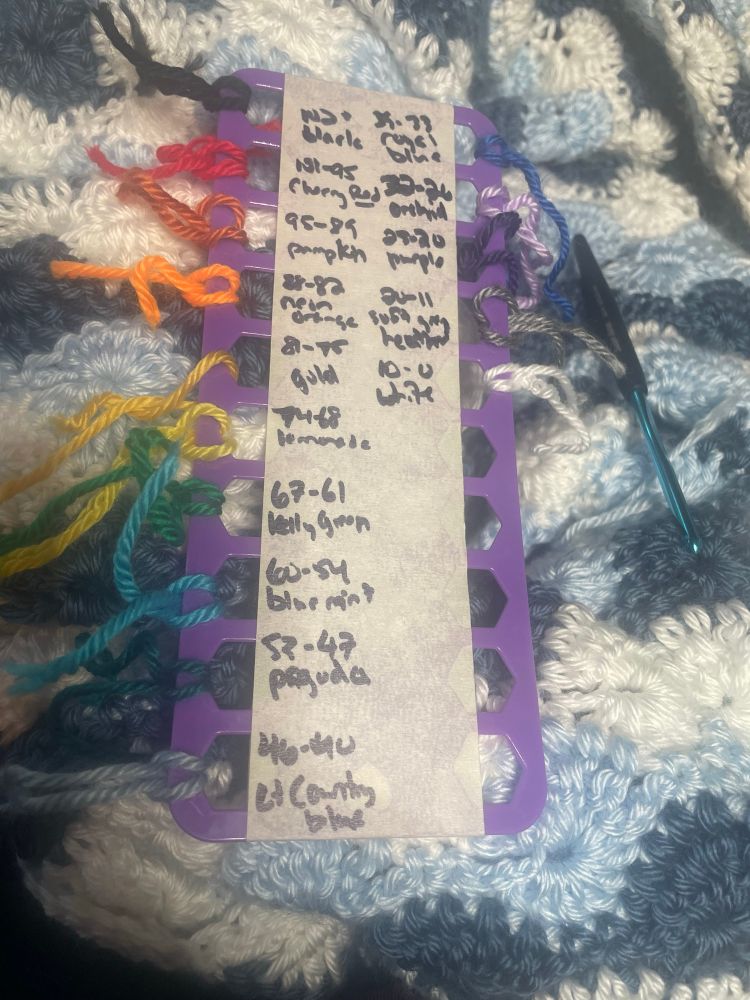 black
101-95
Cherry Red
95-89
pumpkin
88-82
neon
orange
81-75
gold
74-68
lemonade
67-61
kelly green
60-54
blue mint
53-47
pagoda
46-40
Lt Country
blue
39-33
royal
blue
32-26
orchid
purple
soft gray
heather
10-0
white